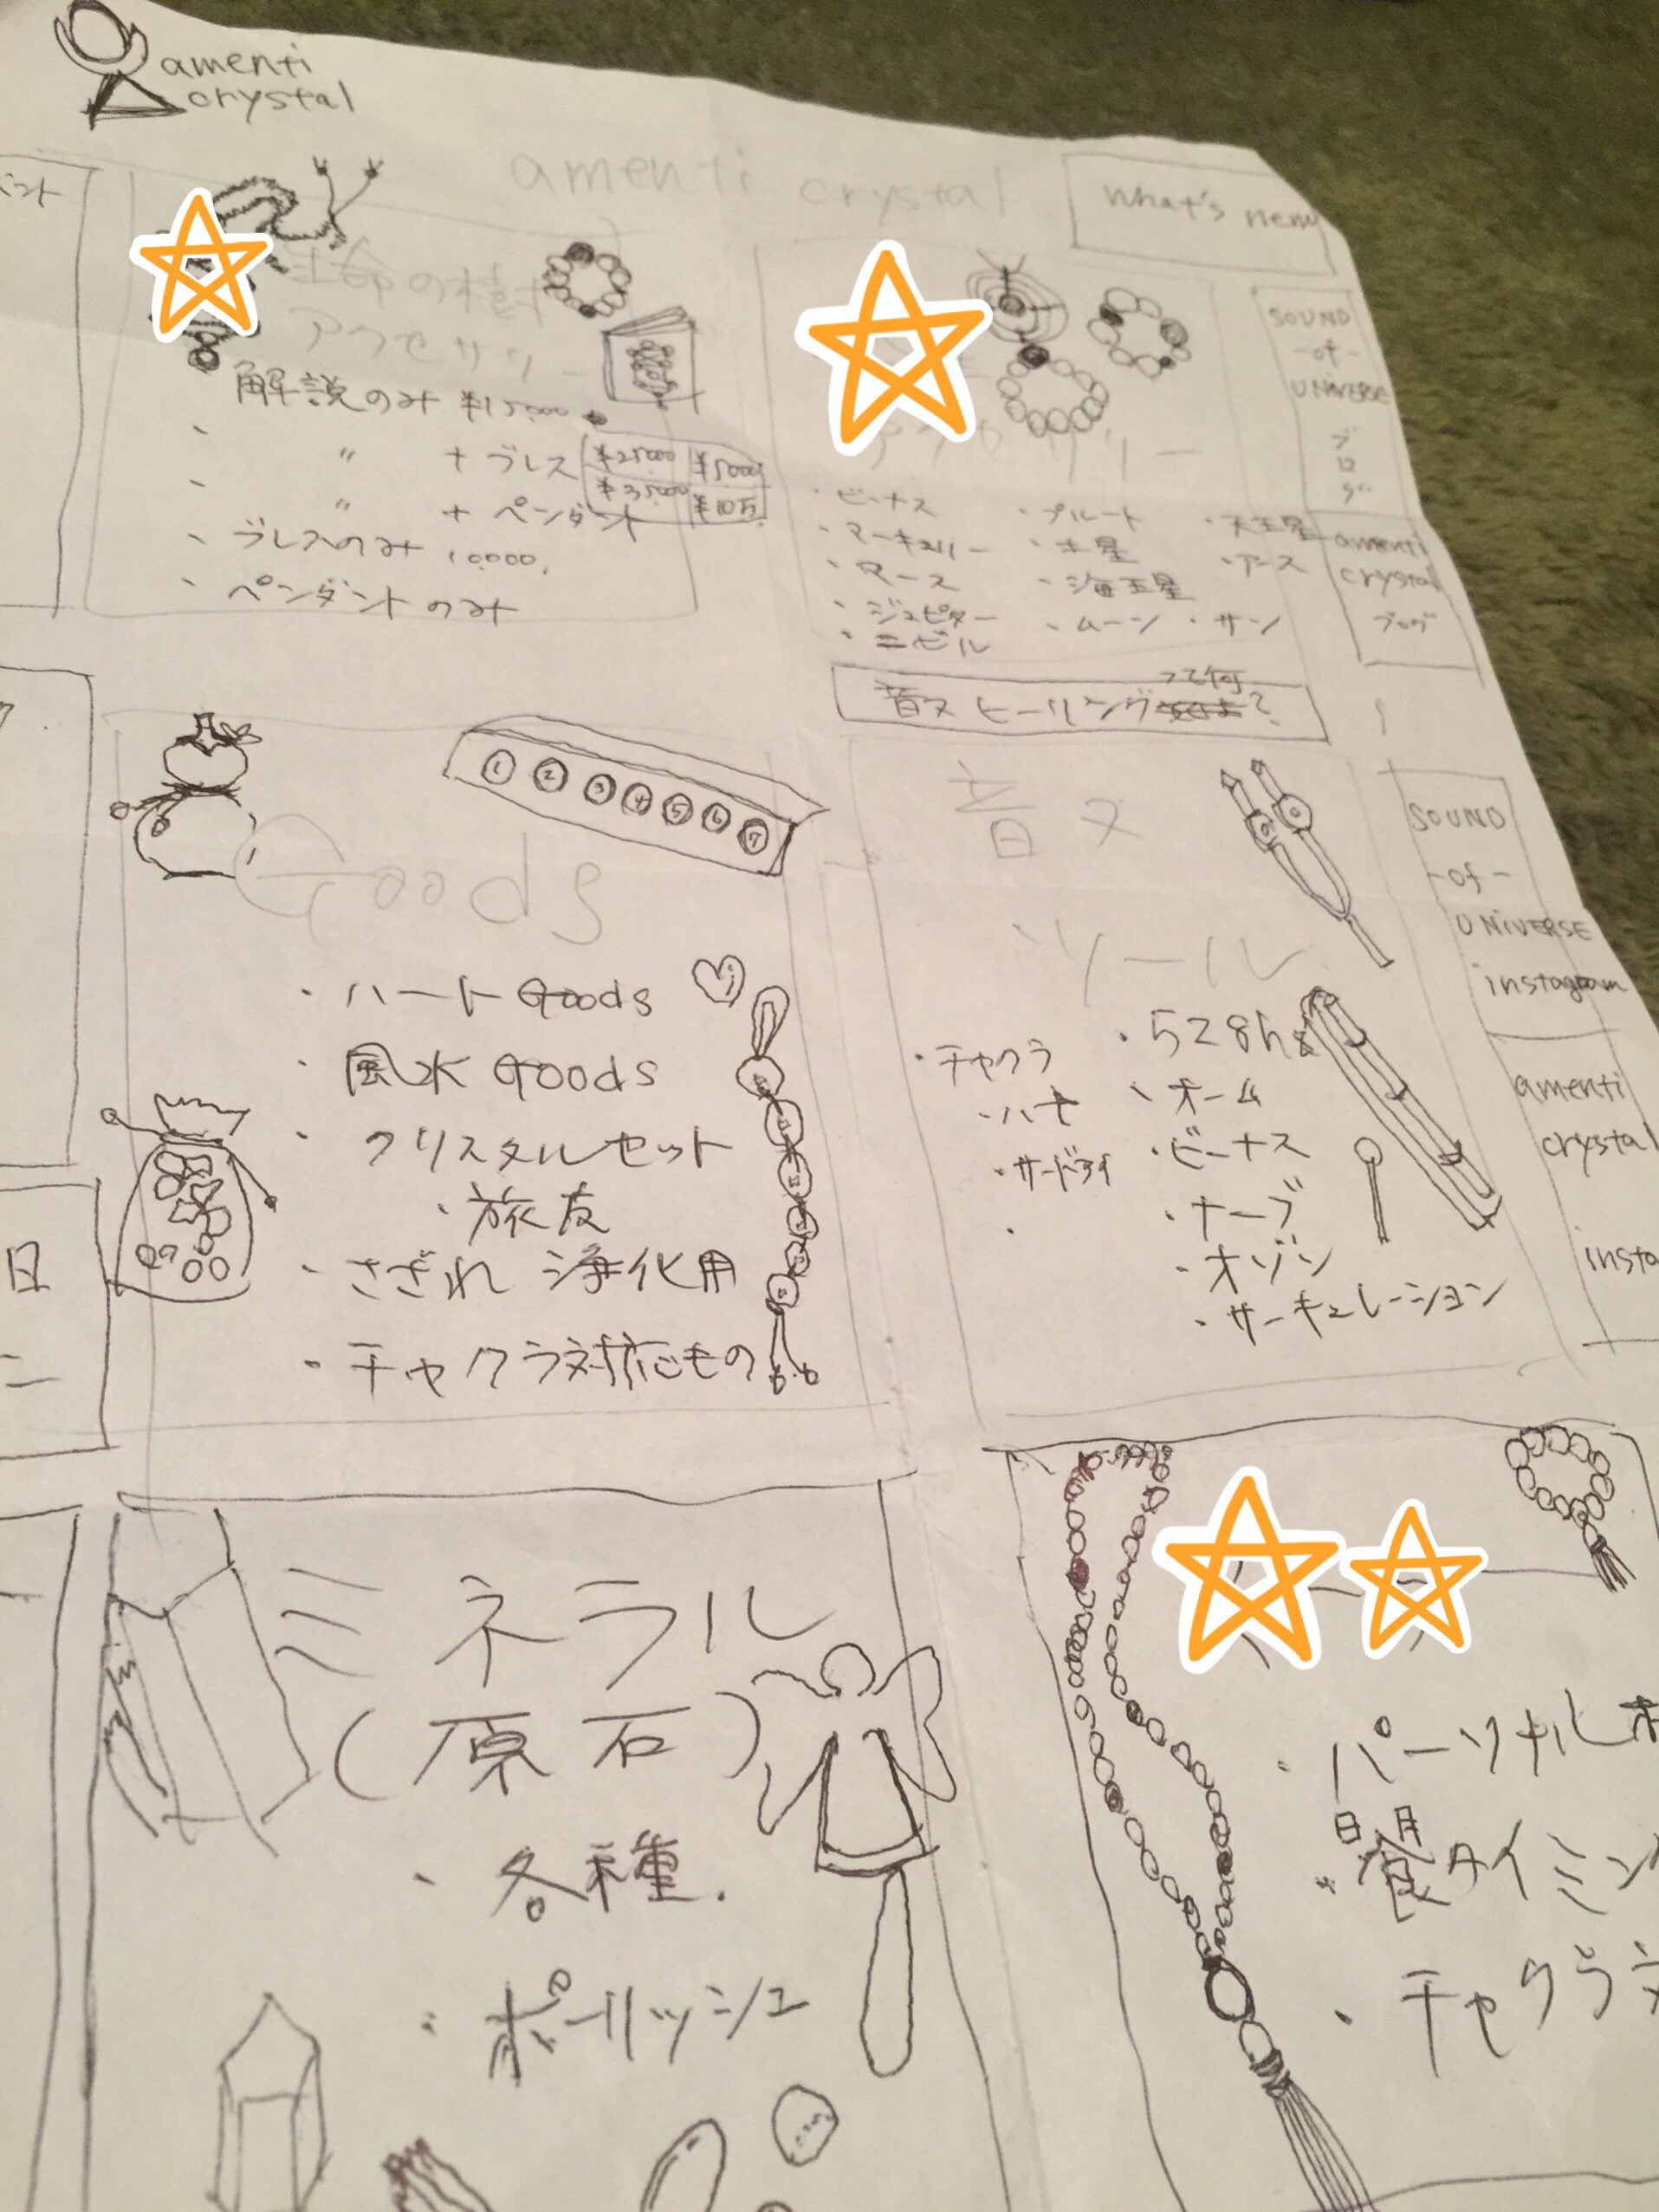 amenti
crystal
amenti crystal
what's new
生命の樹
アクセサリー
解説のみ ¥15000
〃 + ブレス ¥25000 ¥5000
〃 + ペンダント ¥35000 ¥10万
・ブレスのみ 10000.
・ペンダントのみ
アクセサリー
・ビーナス
・マーキュリー
・マース
・ジュピター
・ニビル
・プルート
・土星
・海王星
・ムーン
・天王星
・アース
・サン
SOUND
-of-
UNIVERSE
ブログ
amenti
crystal
ブログ
音叉ヒーリングって何?
Goods
1 2 3 4 5 6 7
・ハート Goods
・風水 Goods
・クリスタルセット
・旅友
・さざれ 浄化用
・チャクラ対応もの
音叉
ツール
・チャクラ
・ハート
・サードアイ
・528hz
・オーム
・ビーナス
・ナーブ
・オゾン
・サーキュレーション
SOUND
-of-
UNIVERSE
instagram
amenti
crystal
insta
日
ミネラル
(原石)
・各種.
・ポーリッシュ
・パーソナル
・日月食タイミン
・チャクラ